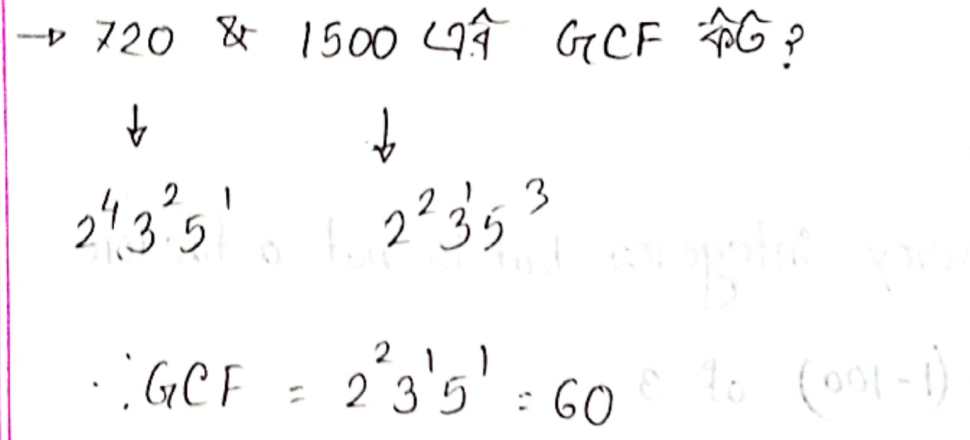 → 720 & 1500 এর GCF কত?
↓ ↓
2⁴3²5¹ 2²3¹5³
∴ GCF = 2²3¹5¹ = 60